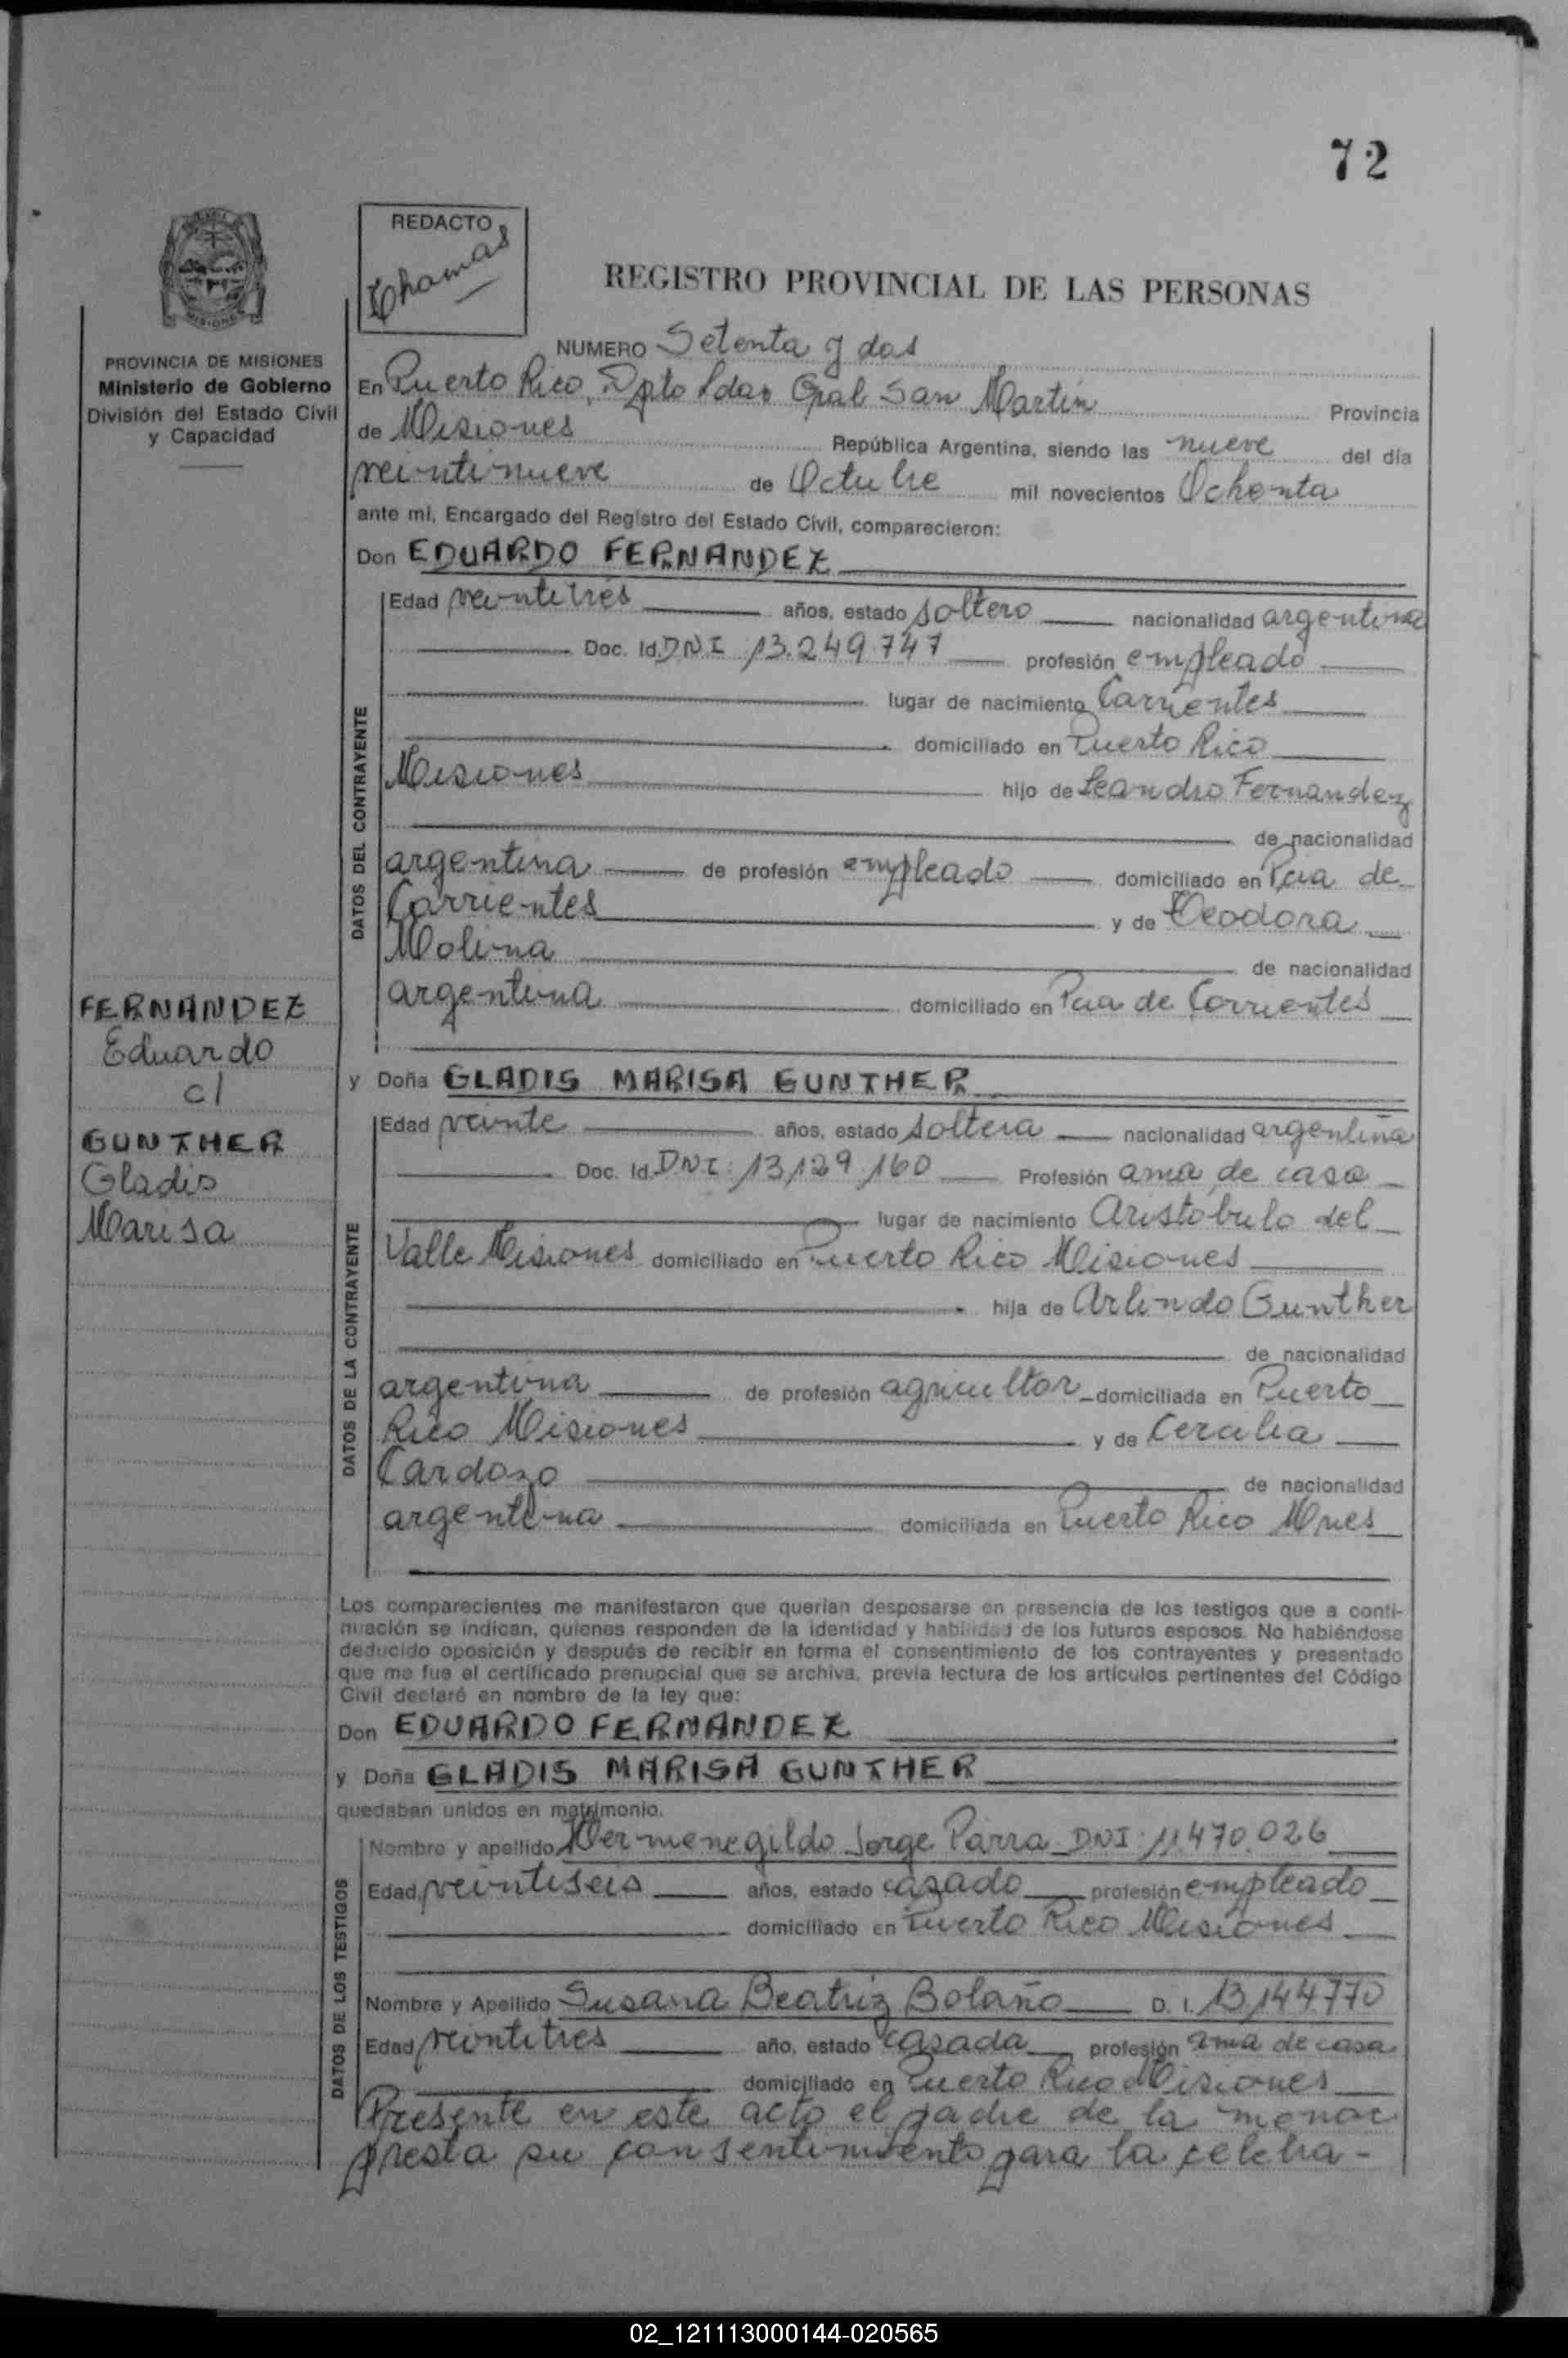 72
REDACTO
Thomas
REGISTRO PROVINCIAL DE LAS PERSONAS
MISIONES
PROVINCIA DE MISIONES
Ministerio de Gobierno
División del Estado Civil
y Capacidad
NUMERO Setenta y dos
En Puerto Rico, Dpto Ldor Gral San Martín Provincia
de Misiones República Argentina, siendo las nueve del día
veintinueve de Octubre mil novecientos Ochenta
ante mi, Encargado del Registro del Estado Civil, comparecieron:
Don EDUARDO FERNANDEZ
DATOS DEL CONTRAYENTE
Edad veintitrés años, estado soltero nacionalidad argentina
Doc. Id. DNI 13.249.747 profesión empleado
lugar de nacimiento Corrientes
domiciliado en Puerto Rico
Misiones hijo de Leandro Fernandez
de nacionalidad
argentina de profesión empleado domiciliado en Pcia de
Corrientes y de Teodora
Molina de nacionalidad
argentina domiciliado en Pcia de Corrientes
FERNANDEZ
Eduardo
c/
GUNTHER
Gladis
Marisa
y Doña GLADIS MARISA GUNTHER
DATOS DE LA CONTRAYENTE
Edad veinte años, estado soltera nacionalidad argentina
Doc. Id. DNI: 13,129.160 Profesión ama de casa
lugar de nacimiento Aristobulo del
Valle Misiones domiciliado en Puerto Rico Misiones
hija de Arlindo Gunther
de nacionalidad
argentina de profesión agricultor domiciliada en Puerto
Rico Misiones y de Cercilia
Cardozo de nacionalidad
argentina domiciliada en Puerto Rico Mnes
Los comparecientes me manifestaron que querían desposarse en presencia de los testigos que a conti-
nuación se indican, quienes responden de la identidad y habilidad de los futuros esposos. No habiéndose
deducido oposición y después de recibir en forma el consentimiento de los contrayentes y presentado
que me fue el certificado prenupcial que se archiva, previa lectura de los artículos pertinentes del Código
Civil declaré en nombre de la ley que:
Don EDUARDO FERNANDEZ
y Doña GLADIS MARISA GUNTHER
quedaban unidos en matrimonio.
DATOS DE LOS TESTIGOS
Nombre y apellido Hermenegildo Jorge Parra DNI: 11.470.026
Edad veintiseis años, estado casado profesión empleado
domiciliado en Puerto Rico Misiones
Nombre y Apellido Susana Beatriz Bolaño D. I. 13,144770
Edad veintitres año, estado casada profesión ama de casa
domiciliado en Puerto Rico Misiones
Presente en este acto el padre de la menor
presta su consentimiento para la celebra-
02_121113000144-020565